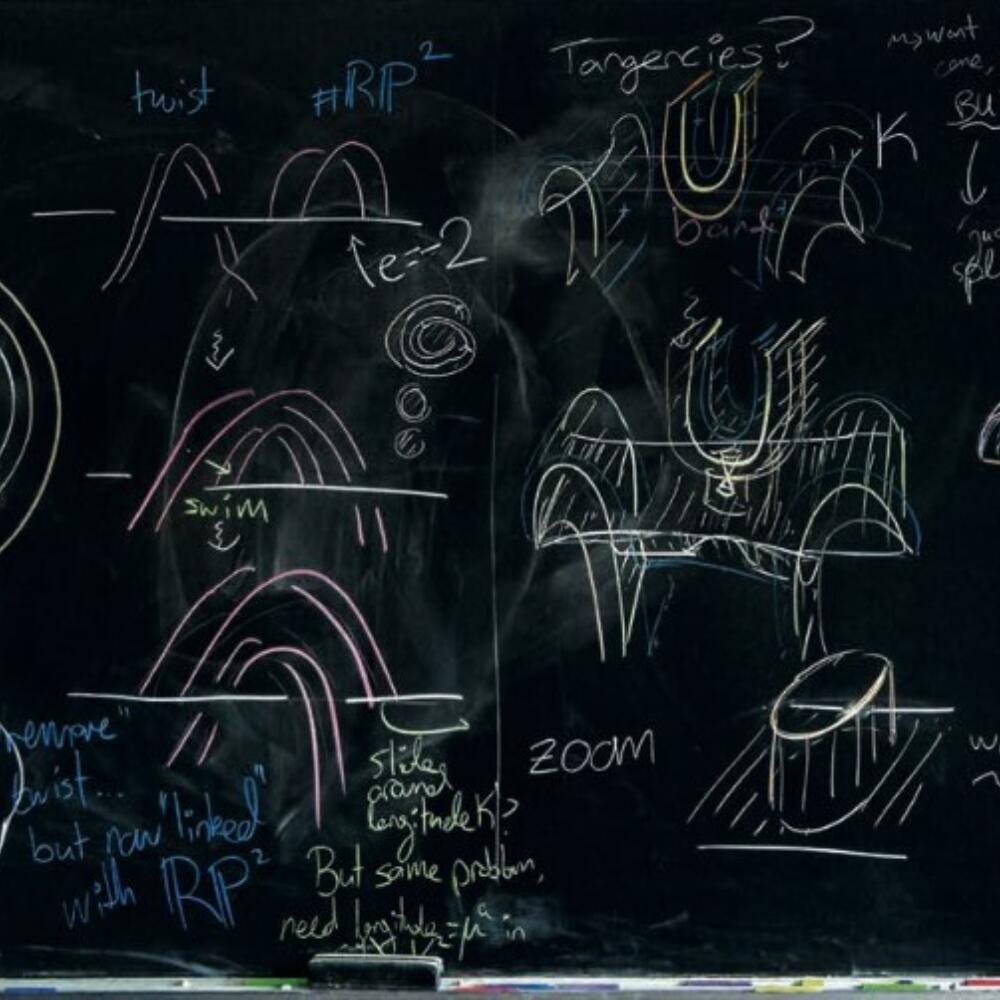 twist
#RP²
e=-2
swim
remove"
twist...
but now "linked"
with RP²
slides
around
longitude K?
But same problem,
need longitude
in
Tangencies?
K
band
zoom
want
BU